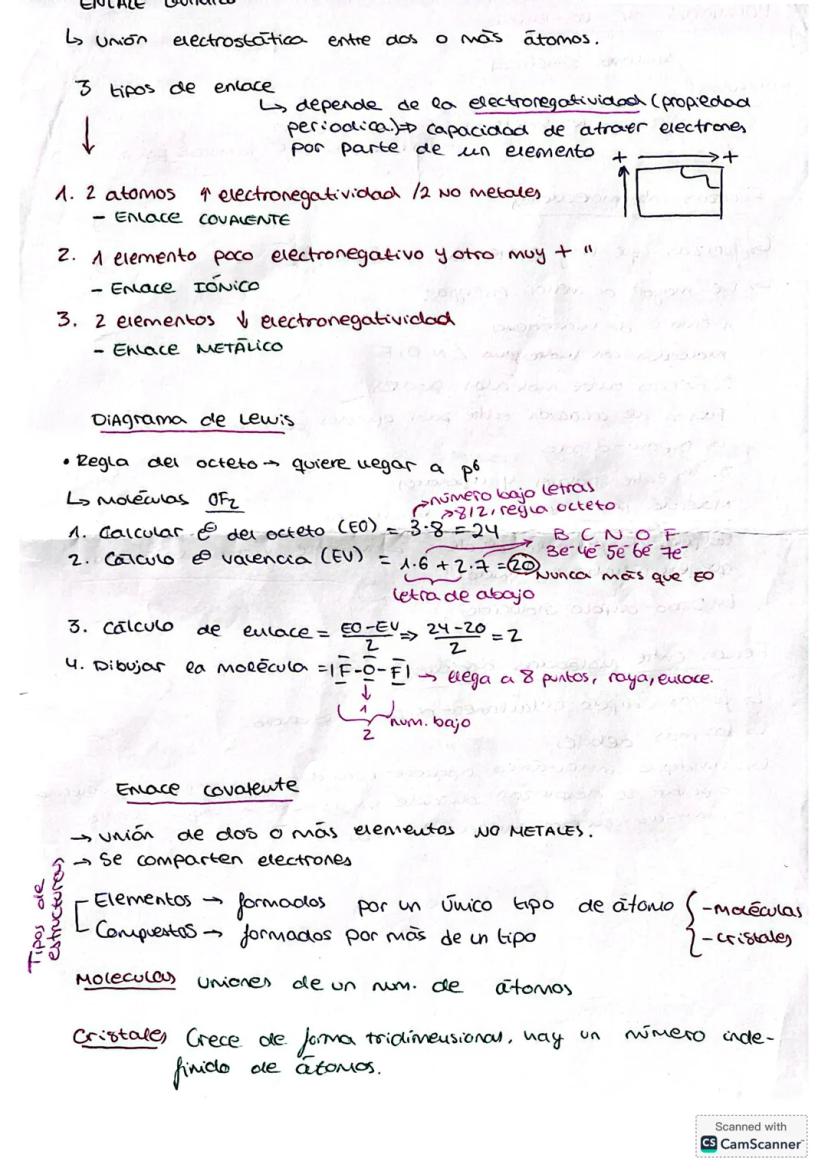 ENLACE QUÍMICO
↳ Unión electrostática entre dos o más átomos.
3 tipos de enlace
↳ depende de la electronegatividad (propiedad
periodica.)⇒ capacidad de atraer electrones
por parte de un elemento + → +
1. 2 atomos ↑ electronegatividad /2 NO metales
- Enlace COVALENTE
2. 1 elemento poco electronegativo y otro muy + "
- Enlace IÓNICO
3. 2 elementos ↓ electronegatividad
- Enlace METÁLICO
Diagrama de Lewis
• Regla del octeto → quiere llegar a p⁶
↳ Moléculas OF₂
→número bajo letras
→8/2, regla octeto
1. Calcular e⁻ del octeto (EO) = 3·8 = 24
B C N O F
3e⁻ 4e⁻ 5e⁻ 6e⁻ 7e⁻
2. Cálculo e⁻ valencia (EV) = 1·6 + 2·7 = 20 Nunca más que EO
letra de abajo
3. Cálculo de enlace = EO-EV/2 ⇒ 24-20/2 = 2
4. Dibujar la molécula = |F-O-F| → llega a 8 puntos, raya, enlace.
↓
1
num. bajo
2
Enlace covalente
→ unión de dos o más elementos NO METALES.
→ Se comparten electrones
Tipos de
estructuras
Elementos → formados por un único tipo de átomo { -moléculas
Compuestos → formados por más de un tipo -cristales
Moleculas uniones de un num. de átomos
Cristales Crece de forma tridimensional, hay un número inde-
finido de átomos.
Scanned with
CS CamScanner